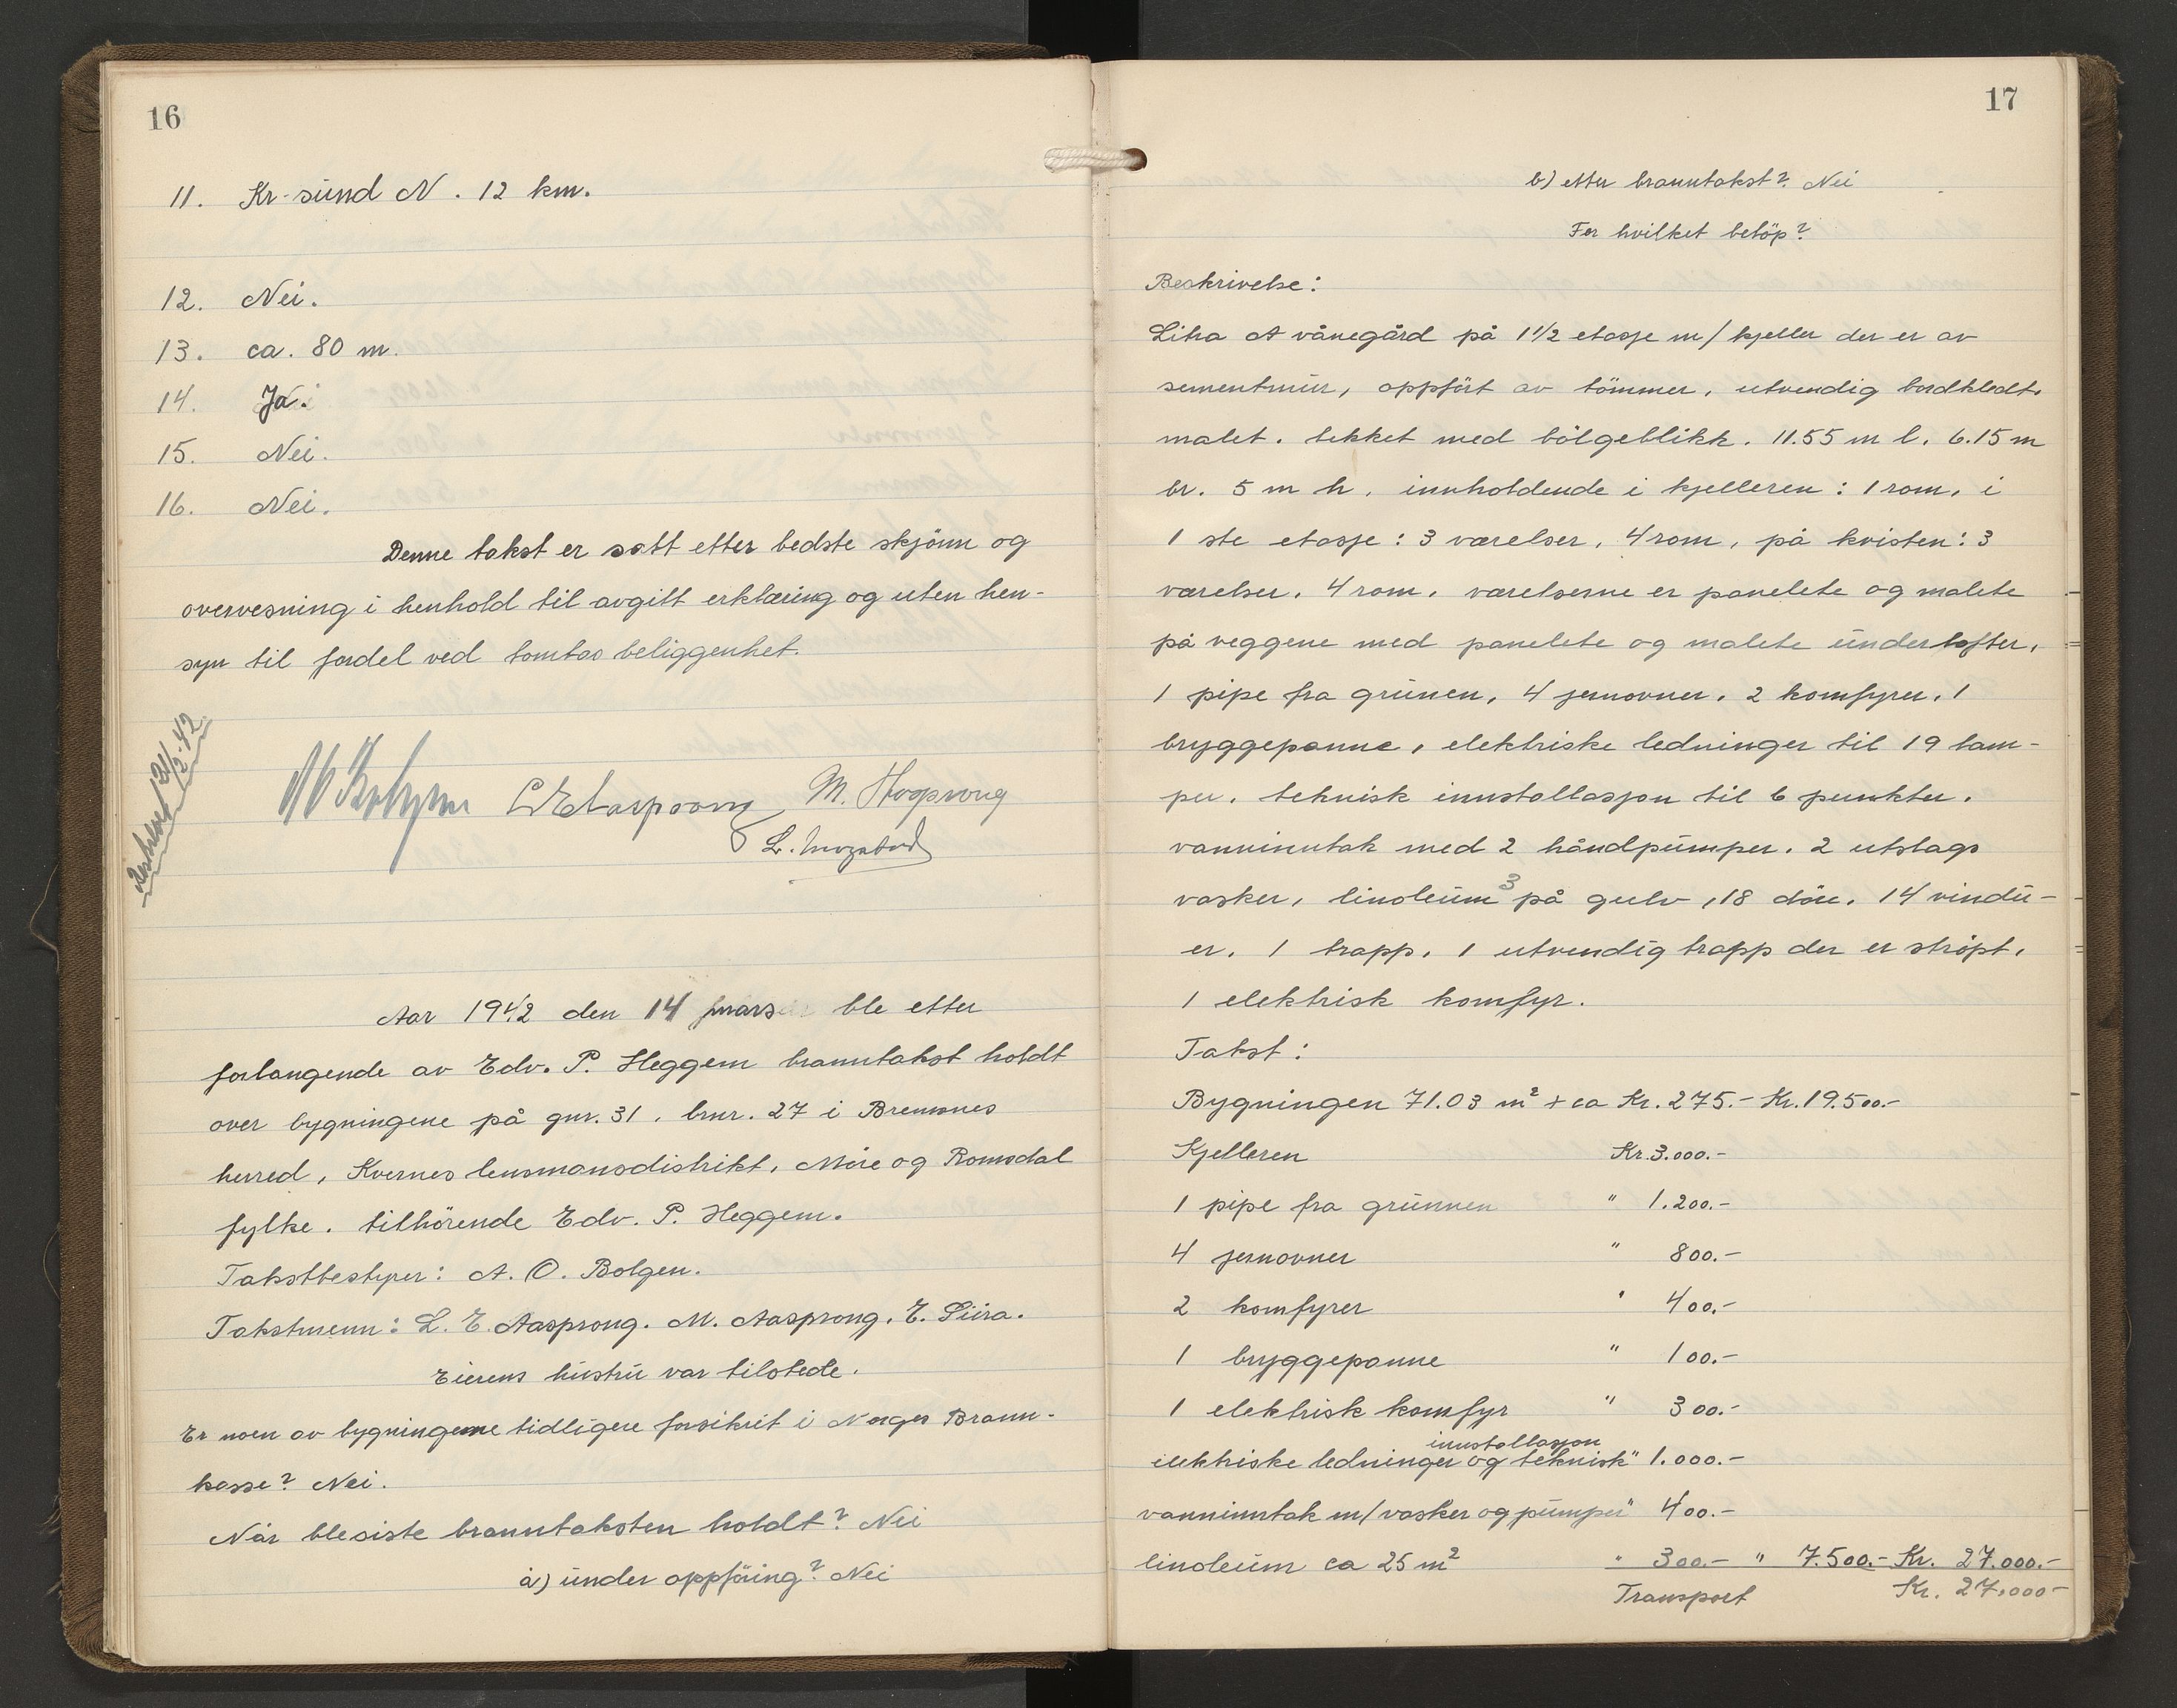 16
11. Kr-sund N. 12 km.
12. Nei.
13. ca. 80 m.
14. Ja.
15. Nei.
16. Nei.
Denne takst er satt etter bedste skjönn og
overvesning i henhold til avgitt erklæring og uten hen-
syn til fordel ved tomtas beliggenhet.
L E Aasprong M. Aasprong
Aar 1942 den 14 mars ble etter
forlangende av Edv. P. Heggem branntakst holdt
over bygningene på gnr. 31. bnr. 27 i Bremsnes
herred, Kvernes lensmansdistrikt, Möre og Romsdal
fylke. tilhörende Edv. P. Heggem.
Takstbestyrer: A. O. Bolgen.
Takstmenn: L. E. Aasprong. M. Aasprong. E. Siira.
Eierens hustru var tilstede.
Er noen av bygningerne tidligere forsikrit i Norges Brann-
kasse? Nei.
Når ble siste branntaksten holdt? Nei
a) under oppföring? Nei
17
b) etter branntakst? Nei
For hvilket belöp?
Beskrivelse:
Litra A vånegård på 1 1/2 etasje m/ kjeller der er av
sementmur, oppfört av tömmer, utvendig bordkledt.
malet. tekket med bölgeblikk. 11.55 m l. 6.15 m
br. 5 m h. innholdende i kjelleren: 1 rom. i
1 ste etasje: 3 værelser. 4 rom, på kvisten: 3
værelser. 4 rom. værelserne er panelete og malete
på veggene med panelete og malete underlofter.
1 pipe fra grunen, 4 jernovner. 2 komfyrer. 1
bryggepanne, elektriske ledninger til 19 lam-
per. teknisk innstallasjon til 6 punkter.
vanninntak med 2 håndpumper. 2 utslags
vasker, linoleum 3 på gulv, 18 döre. 14 vindu-
er. 1 trapp. 1 utvendig trapp der er ströpt.
1 elektrisk komfyr.
Takst:
Bygningen 71.03 m² + ca Kr. 275.- Kr. 19.500.-
Kjelleren Kr. 3.000.-
1 pipe fra grunnen " 1.200.-
4 jernovner " 800.-
2 komfyrer " 400.-
1 bryggepanne " 100.-
1 elektrisk komfyr " 300.-
innstallasjon
elektriske ledninger og teknisk " 1.000.-
vanninntak m/ vasker og pumper " 400.-
linoleum ca 25 m² " 300.- " 7.500.- Kr. 27.000.-
Transport Kr. 27.000-